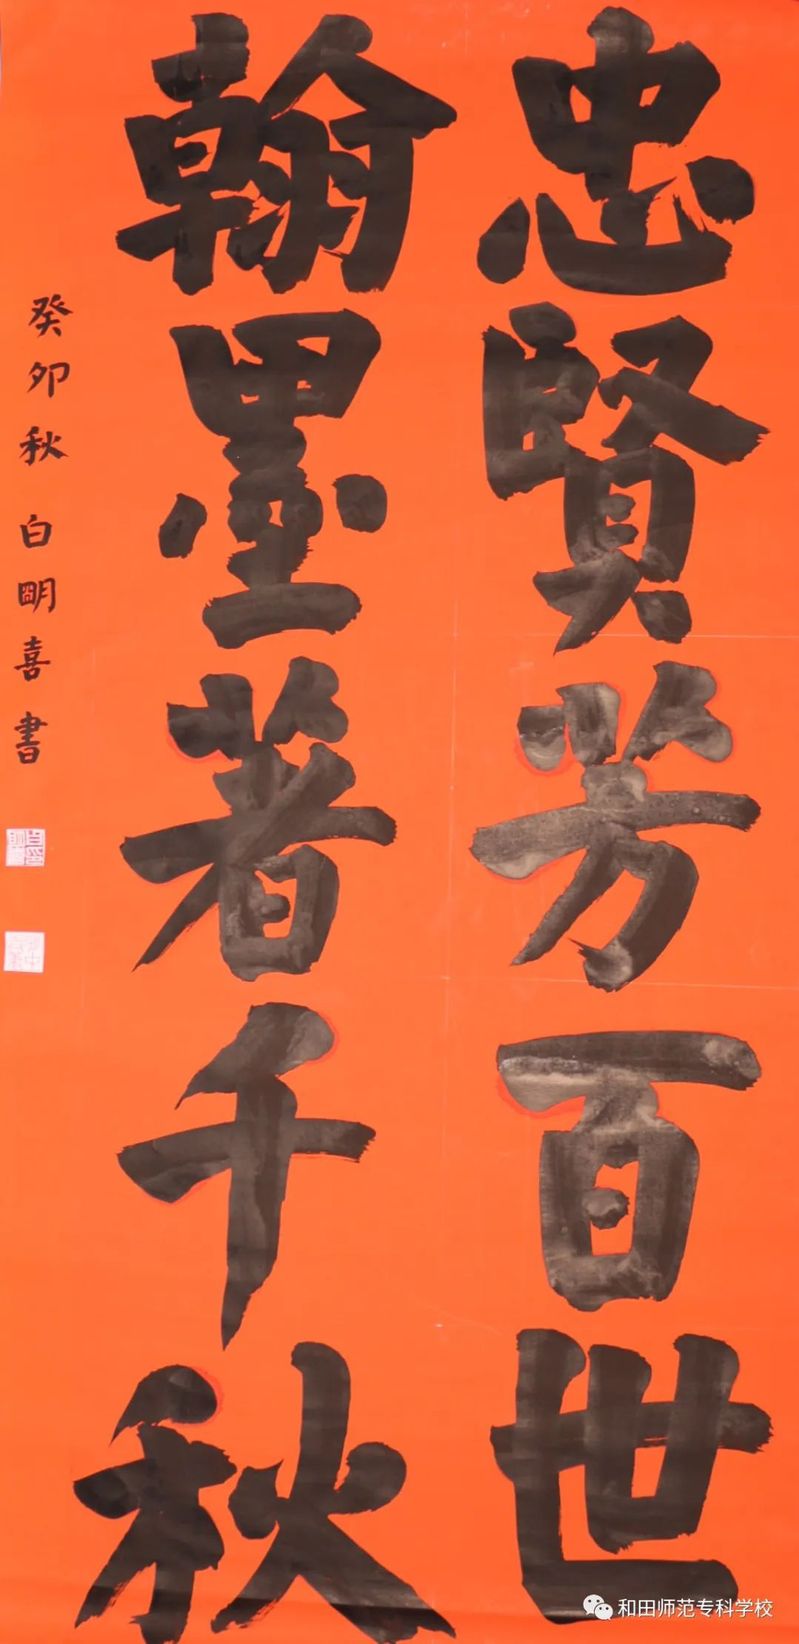 忠賢芳百世
翰墨著千秋
癸卯秋 白朙喜書
和田师范专科学校